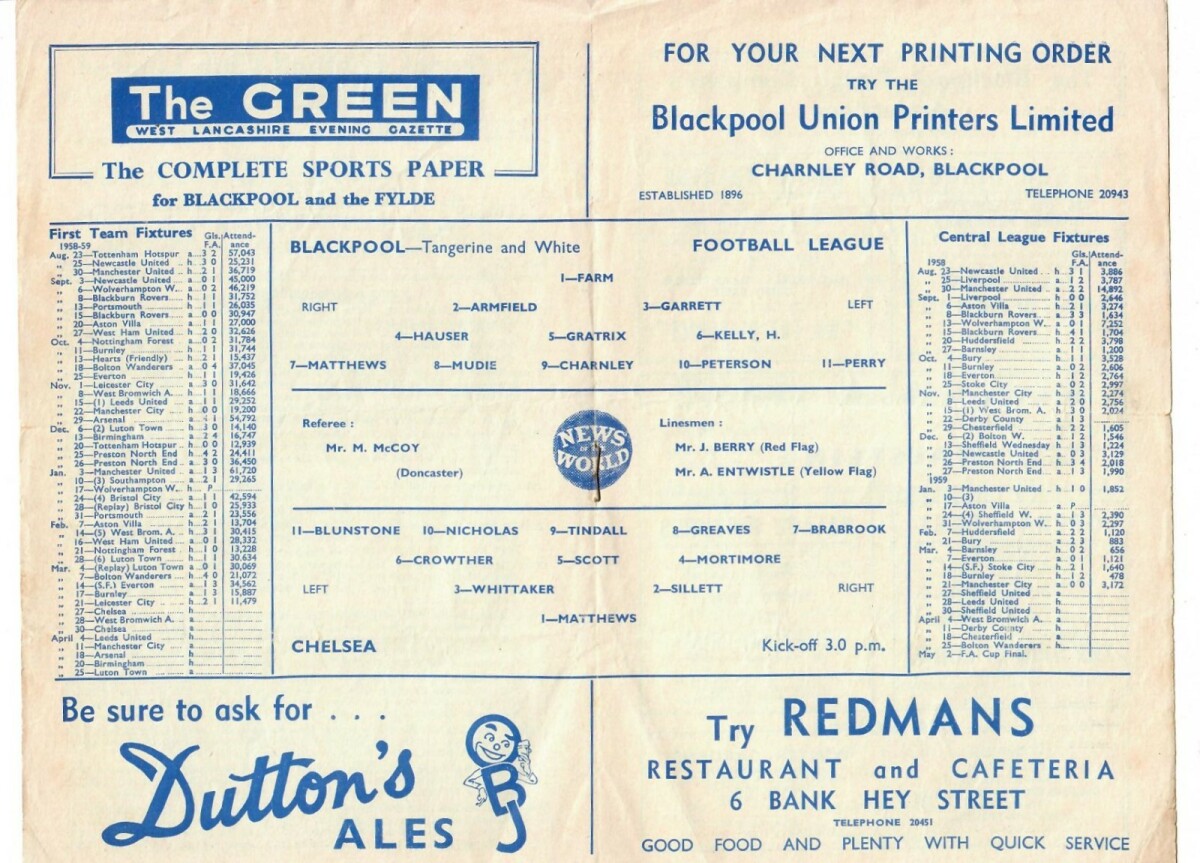 The GREEN
WEST LANCASHIRE EVENING GAZETTE
The COMPLETE SPORTS PAPER
for BLACKPOOL and the FYLDE
FOR YOUR NEXT PRINTING ORDER
TRY THE
Blackpool Union Printers Limited
OFFICE AND WORKS :
CHARNLEY ROAD, BLACKPOOL
ESTABLISHED 1896 TELEPHONE 20943
First Team Fixtures
1958-59 Gls. F. A. Attend-ance
Aug. 23—Tottenham Hotspur a 3 2 57,043
„ 25—Newcastle United h 3 0 25,231
„ 30—Manchester United h 2 1 36,719
Sept. 3—Newcastle United a 0 1 45,000
„ 6—Wolverhampton W. a 0 2 46,219
„ 8—Blackburn Rovers h 1 1 31,752
„ 13—Portsmouth h 1 1 26,035
„ 15—Blackburn Rovers a 0 0 30,947
„ 20—Aston Villa a 1 1 27,000
„ 27—West Ham United h 2 0 32,626
Oct. 4—Nottingham Forest a 0 2 31,784
„ 11—Burnley h 1 1 31,744
„ 13—Hearts (Friendly) h 2 1 15,437
„ 18—Bolton Wanderers a 0 4 37,045
„ 25—Everton h 1 1 19,426
Nov. 1—Leicester City a 3 0 31,642
„ 8—West Bromwich A. h 1 1 18,666
„ 15—(1) Leeds United a 1 1 29,252
„ 22—Manchester City h 0 0 19,200
„ 29—Arsenal a 1 54,792
Dec. 6—(2) Luton Town h 3 0 14,140
„ 13—Birmingham a 2 4 16,747
„ 20—Tottenham Hotspur h 0 0 12,939
„ 25—Preston North End h 4 2 24,411
„ 26—Preston North End a 3 0 36,450
Jan. 3—Manchester United a 1 3 61,720
„ 10—(3) Southampton a 2 1 29,265
„ 17—Wolverhampton W. h P
„ 24—(4) Bristol City a 1 1 42,594
„ 28—(Replay) Bristol City h 1 0 25,933
„ 31—Portsmouth a 2 1 23,556
Feb. 7—Aston Villa h 2 1 13,704
„ 14—(5) West Brom. A. h 3 1 30,415
„ 16—West Ham United a 0 1 28,332
„ 21—Nottingham Forest h 1 0 13,228
„ 28—(6) Luton Town h 1 1 30,634
Mar. 4—(Replay) Luton Town a 0 1 30,069
„ 7—Bolton Wanderers h 4 0 21,072
„ 14—(S.F.) Everton a 1 3 34,562
„ 17—Burnley a 1 3 15,887
„ 21—Leicester City h 2 1 11,479
„ 27—Chelsea h
„ 28—West Bromwich A. a
„ 30—Chelsea a
April 4—Leeds United h
„ 11—Manchester City a
„ 18—Arsenal h
„ 20—Birmingham h
„ 25—Luton Town a
BLACKPOOL—Tangerine and White FOOTBALL LEAGUE
1—FARM
RIGHT 2—ARMFIELD 3—GARRETT LEFT
4—HAUSER 5—GRATRIX 6—KELLY, H.
7—MATTHEWS 8—MUDIE 9—CHARNLEY 10—PETERSON 11—PERRY
Referee :
Mr. M. McCOY
(Doncaster)
NEWS
OF THE
WORLD
Linesmen :
Mr. J. BERRY (Red Flag)
Mr. A. ENTWISTLE (Yellow Flag)
11—BLUNSTONE 10—NICHOLAS 9—TINDALL 8—GREAVES 7—BRABROOK
6—CROWTHER 5—SCOTT 4—MORTIMORE
LEFT 3—WHITTAKER 2—SILLETT RIGHT
1—MATTHEWS
CHELSEA Kick-off 3.0 p.m.
Central League Fixtures
1958 Gls. F. A. Attend-ance
Aug. 23—Newcastle United h 3 1 3,886
„ 25—Liverpool a 1 2 3,787
„ 30—Manchester United a 2 2 14,892
Sept. 1—Liverpool h 0 0 2,646
„ 6—Aston Villa h 2 1 3,274
„ 8—Blackburn Rovers a 3 3 1,634
„ 13—Wolverhampton W. a 0 1 7,252
„ 15—Blackburn Rovers h 4 1 1,704
„ 20—Huddersfield h 2 2 3,798
„ 27—Barnsley a 1 1 1,200
Oct. 4—Bury h 1 1 3,528
„ 11—Burnley a 0 2 2,606
„ 18—Everton h 1 2 2,764
„ 25—Stoke City a 0 2 2,997
Nov. 1—Manchester City h 3 2 2,274
„ 8—Leeds United a 2 0 2,756
„ 15—(1) West Brom. A. h 3 0 2,024
„ 22—Derby County a 1 3
„ 29—Chesterfield h 2 2 1,605
Dec. 6—(2) Bolton W. a 1 2 1,546
„ 13—Sheffield Wednesday h 1 3 1,224
„ 20—Newcastle United a 0 3 3,129
„ 26—Preston North End h 3 4 2,018
„ 27—Preston North End a 1 3 1,990
1959
Jan. 3—Manchester United h 1 0 1,852
„ 10—(3)
„ 17—Aston Villa a P
„ 24—(4) Sheffield W. a 1 3 2,390
„ 31—Wolverhampton W. h 0 3 2,297
Feb. 7—Huddersfield a 2 2 1,120
„ 21—Bury a 2 3 883
Mar. 4—Barnsley h 0 2 656
„ 7—Everton a 0 1 1,121
„ 14—(S.F.) Stoke City h 2 1 1,640
„ 18—Burnley h 1 2 478
„ 21—Manchester City a 0 0 3,172
„ 27—Sheffield United a
„ 28—Leeds United h
„ 30—Sheffield United h
April 4—West Bromwich A. a
„ 11—Derby County h
„ 18—Chesterfield a
„ 25—Bolton Wanderers h
May 2—F.A. Cup Final.
Be sure to ask for . . .
Dutton's
ALES
BJ
Try REDMANS
RESTAURANT and CAFETERIA
6 BANK HEY STREET
TELEPHONE 20451
GOOD FOOD AND PLENTY WITH QUICK SERVICE